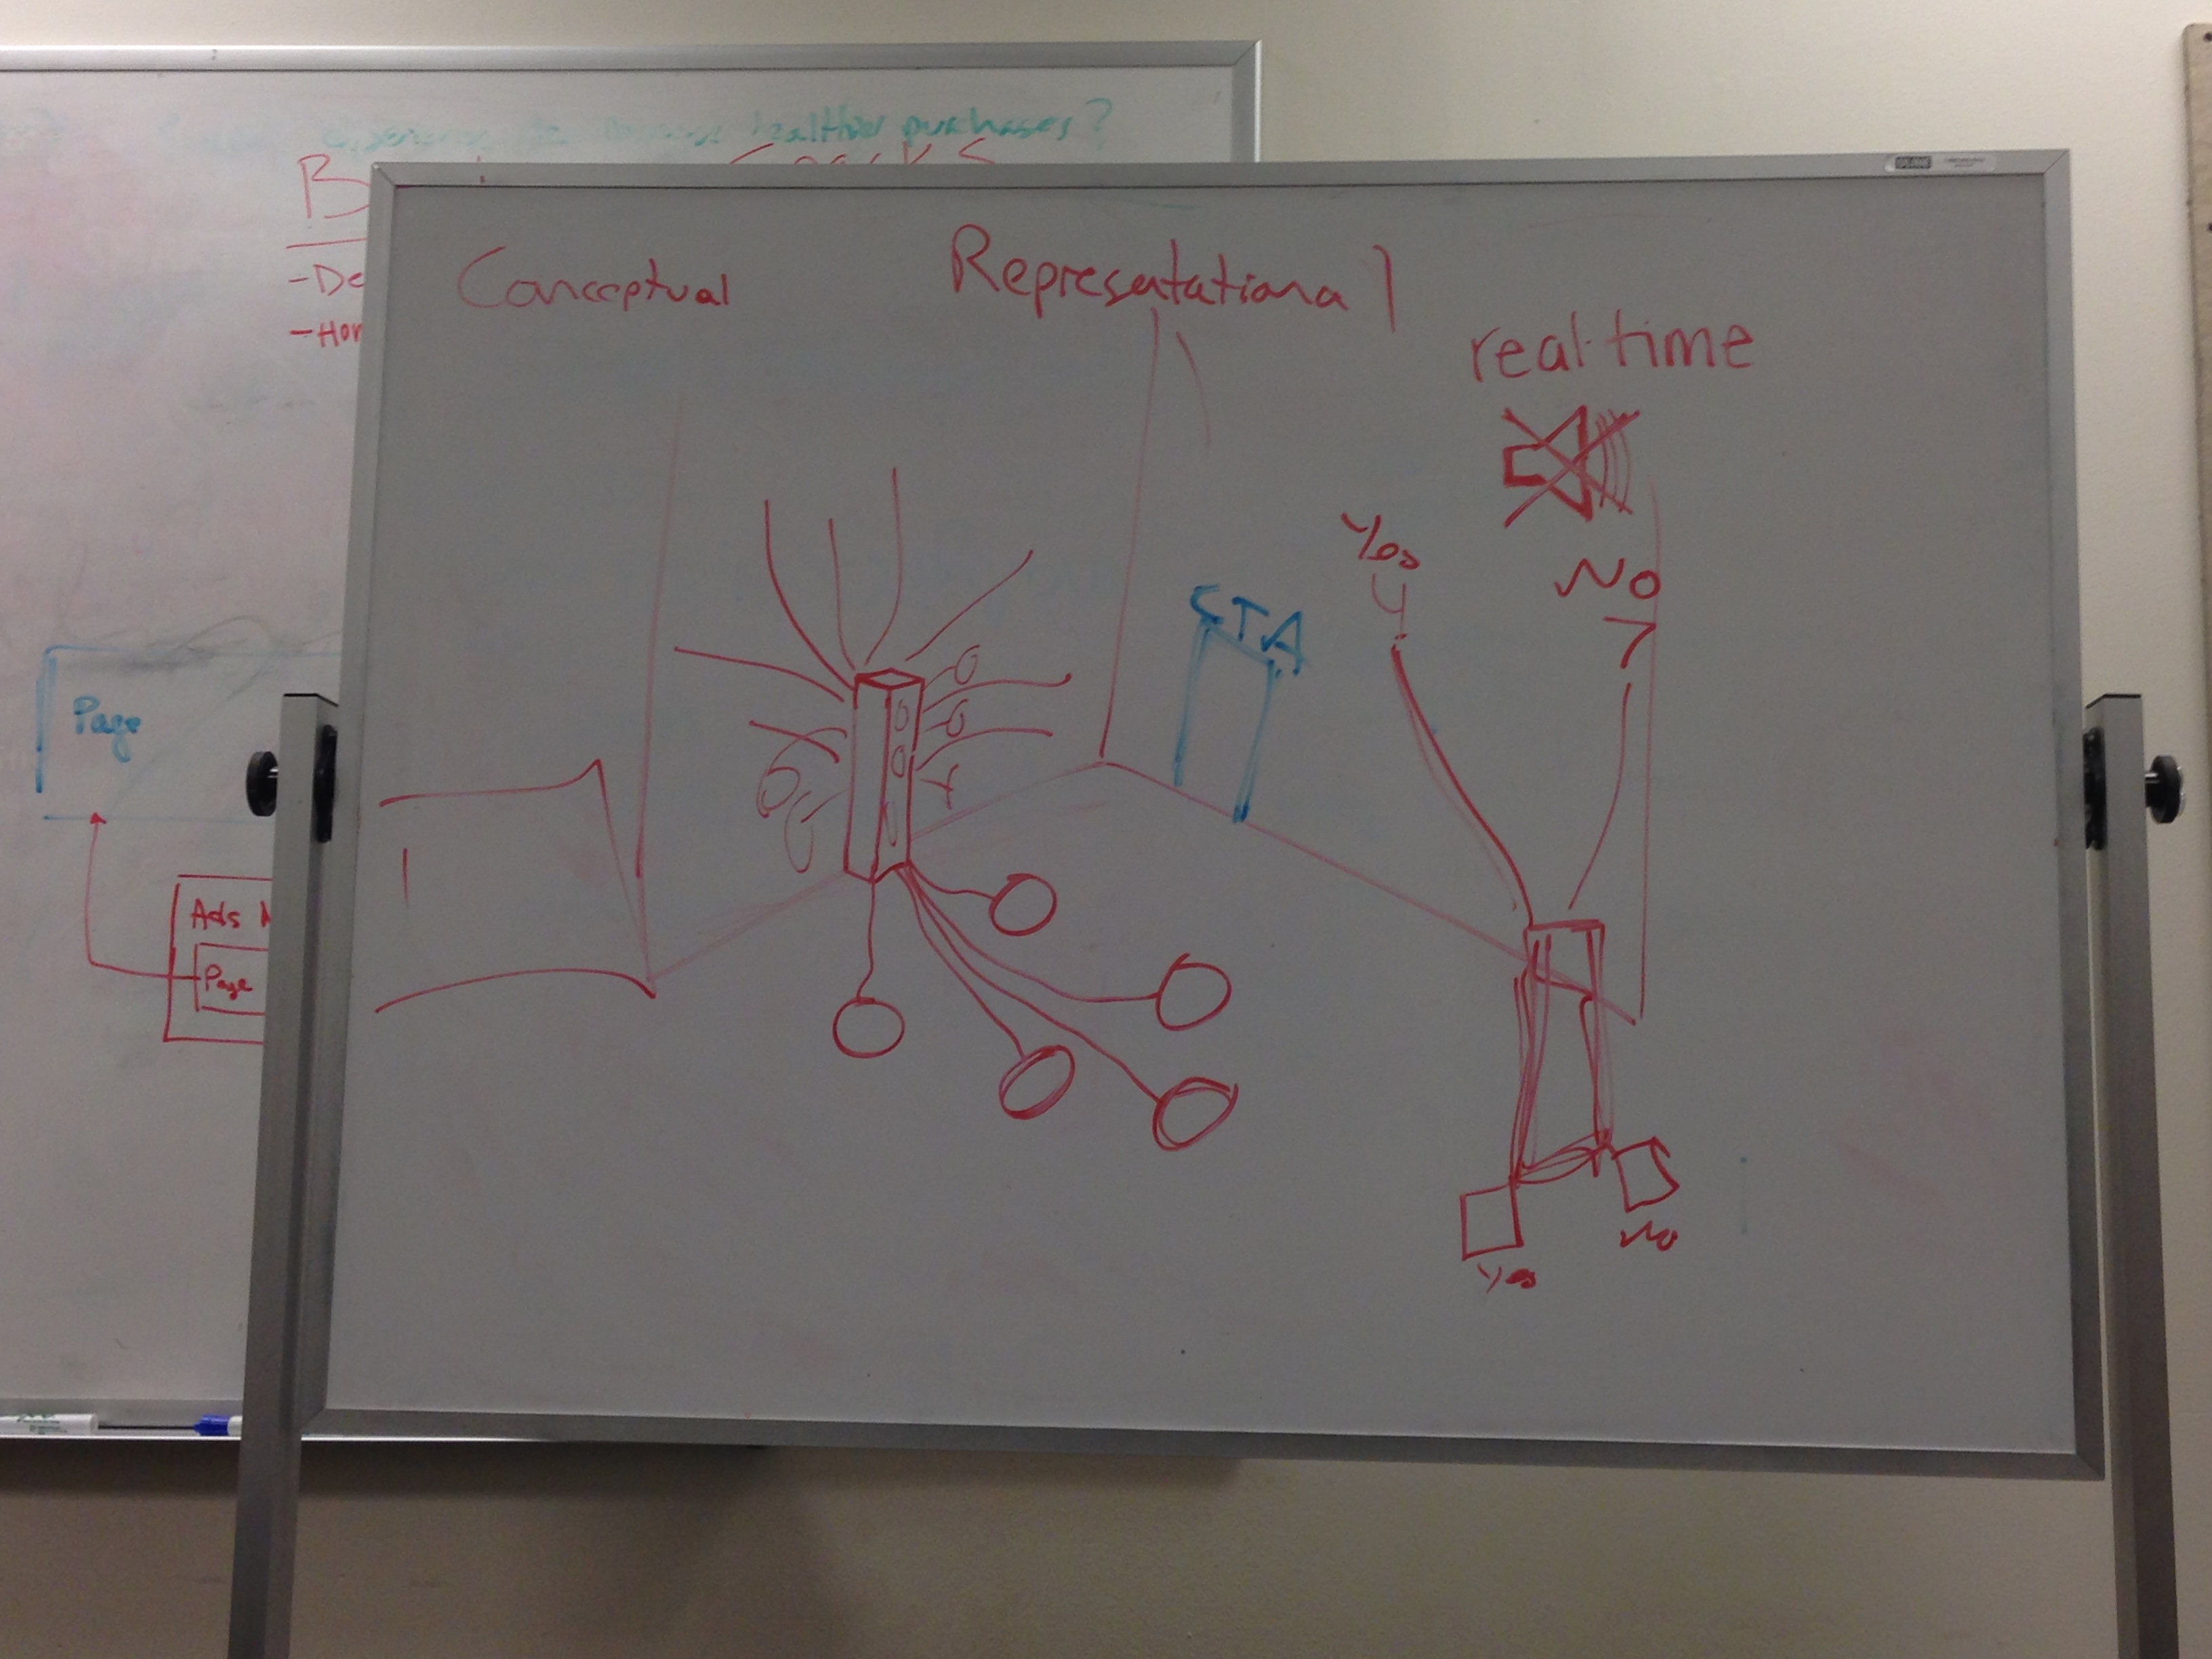 healthier purchases?
B
- De
- Hor
Page
Ads
Page
Conceptual
Representational
real-time
Yes
No
CTA
Yes
No